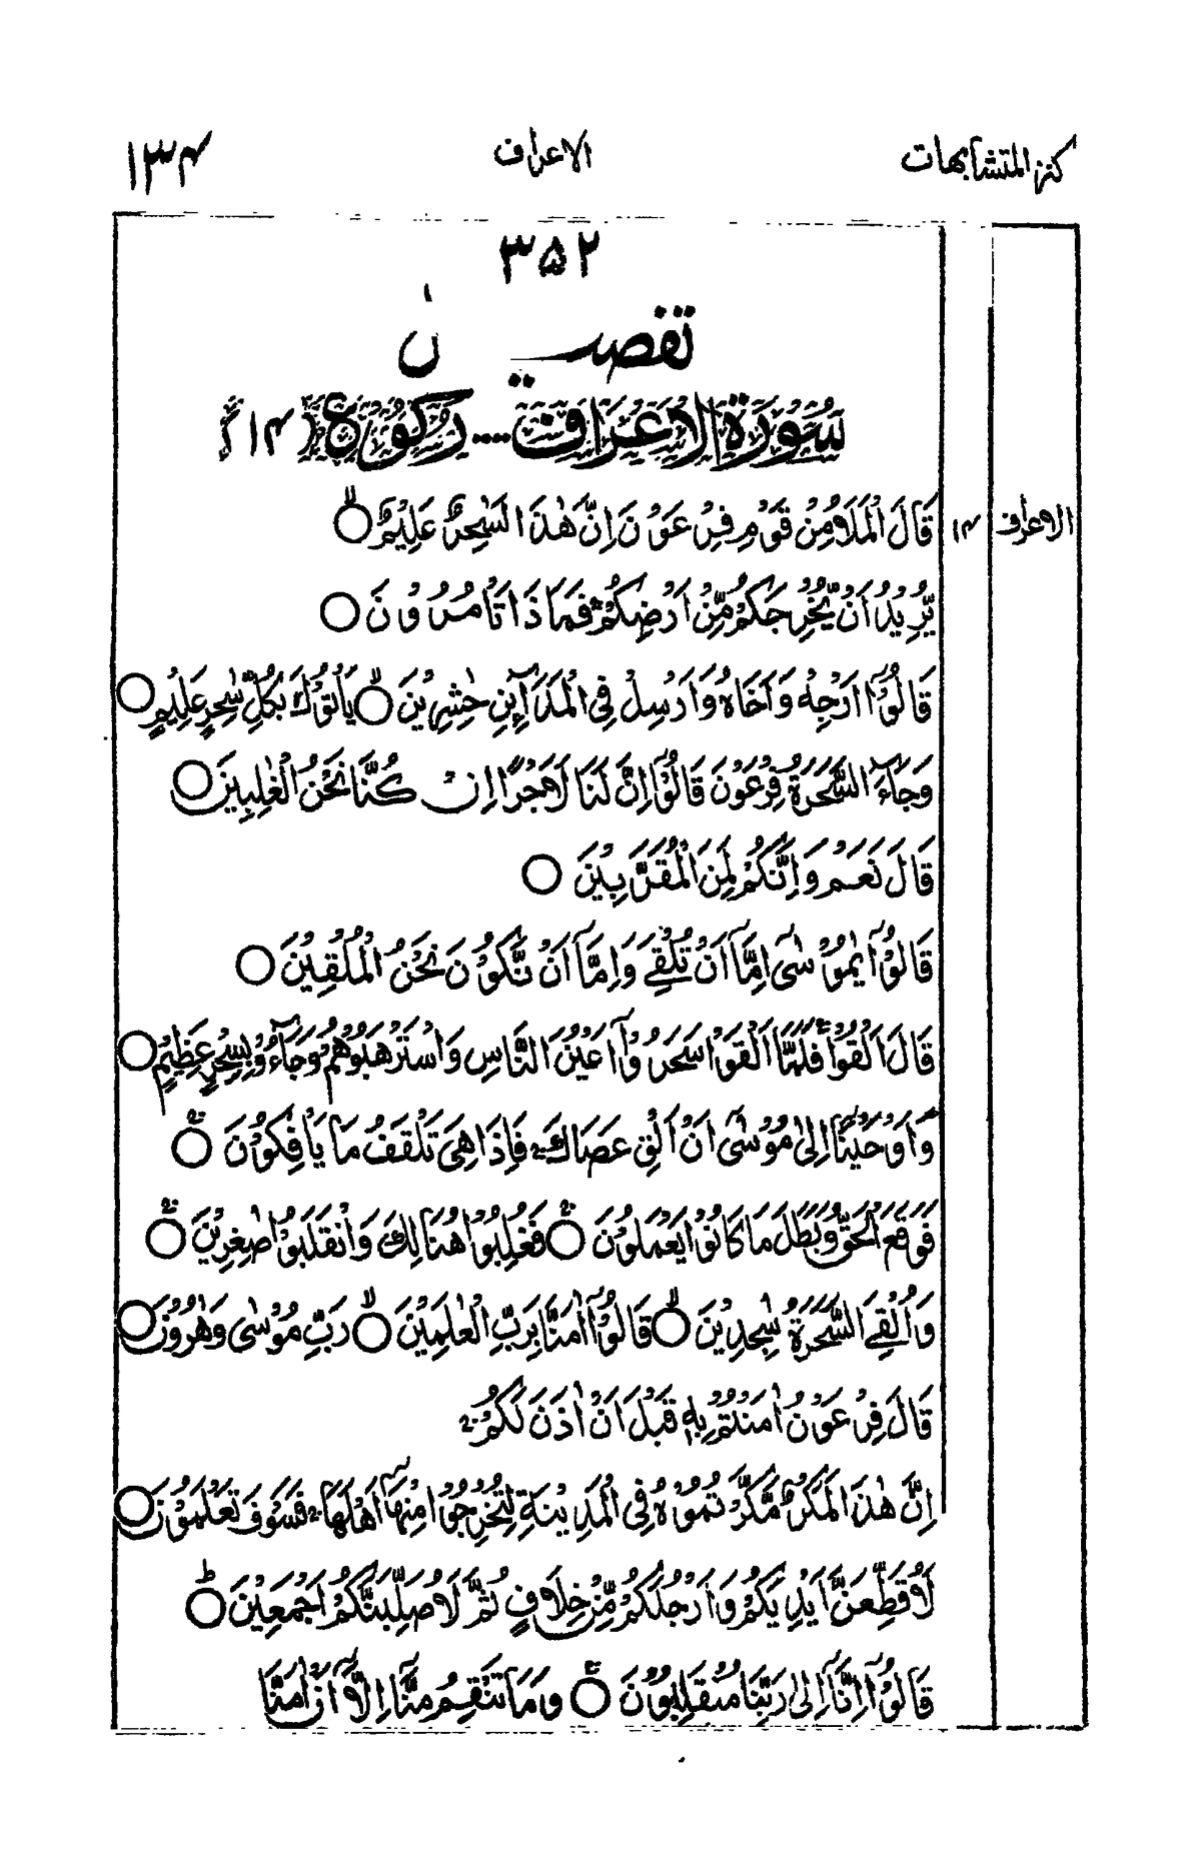 كنز المتشابهات الاعراف ۱۳۴
۳۵۲
سُوْرَةُ الْاَعْرَافِ .... رُكُوْع (۱۴)
الاعراف ۱۴
قَالَ الْمَلَاُ مِنْ قَوْمِ فِرْعَوْنَ اِنَّ هٰذَا لَسٰحِرٌ عَلِيْمٌ ۙ○
يُّرِيْدُ اَنْ يُّخْرِجَكُمْ مِّنْ اَرْضِكُمْ ۚ فَمَا ذَا تَاْمُرُوْنَ ○
قَالُوْۤا اَرْجِهْ وَاَخَاهُ وَاَرْسِلْ فِي الْمَدَآئِنِ حٰشِرِيْنَ ۙ○ يَاْتُوْكَ بِكُلِّ سٰحِرٍ عَلِيْمٍ ○
وَجَآءَ السَّحَرَةُ فِرْعَوْنَ قَالُوْۤا اِنَّ لَنَا لَاَجْرًا اِنْ كُنَّا نَحْنُ الْغٰلِبِيْنَ ○
قَالَ نَعَمْ وَاِنَّكُمْ لَمِنَ الْمُقَرَّبِيْنَ ○
قَالُوْا يٰمُوْسٰۤى اِمَّاۤ اَنْ تُلْقِيَ وَاِمَّاۤ اَنْ نَّكُوْنَ نَحْنُ الْمُلْقِيْنَ ○
قَالَ اَلْقُوْا ۚ فَلَمَّاۤ اَلْقَوْا سَحَرُوْۤا اَعْيُنَ النَّاسِ وَاسْتَرْهَبُوْهُمْ وَجَآءُوْ بِسِحْرٍ عَظِيْمٍ ○
وَاَوْحَيْنَاۤ اِلٰى مُوْسٰۤى اَنْ اَلْقِ عَصَاكَ ۚ فَاِذَا هِيَ تَلْقَفُ مَا يَاْفِكُوْنَ ۚ○
فَوَقَعَ الْحَقُّ وَبَطَلَ مَا كَانُوْا يَعْمَلُوْنَ ۚ○ فَغُلِبُوْا هُنَالِكَ وَانْقَلَبُوْا صٰغِرِيْنَ ۚ○
وَاُلْقِيَ السَّحَرَةُ سٰجِدِيْنَ ۙ○ قَالُوْۤا اٰمَنَّا بِرَبِّ الْعٰلَمِيْنَ ۙ○ رَبِّ مُوْسٰى وَهٰرُوْنَ ○
قَالَ فِرْعَوْنُ اٰمَنْتُمْ بِهٖ قَبْلَ اَنْ اٰذَنَ لَكُمْ ۚ
اِنَّ هٰذَا لَمَكْرٌ مَّكَرْتُمُوْهُ فِي الْمَدِيْنَةِ لِتُخْرِجُوْا مِنْهَاۤ اَهْلَهَا ۚ فَسَوْفَ تَعْلَمُوْنَ ○
لَاُقَطِّعَنَّ اَيْدِيَكُمْ وَاَرْجُلَكُمْ مِّنْ خِلَافٍ ثُمَّ لَاُصَلِّبَنَّكُمْ اَجْمَعِيْنَ ○ؕ
قَالُوْۤا اِنَّاۤ اِلٰى رَبِّنَا مُنْقَلِبُوْنَ ۚ○ وَمَا تَنْقِمُ مِنَّاۤ اِلَّاۤ اَنْ اٰمَنَّا